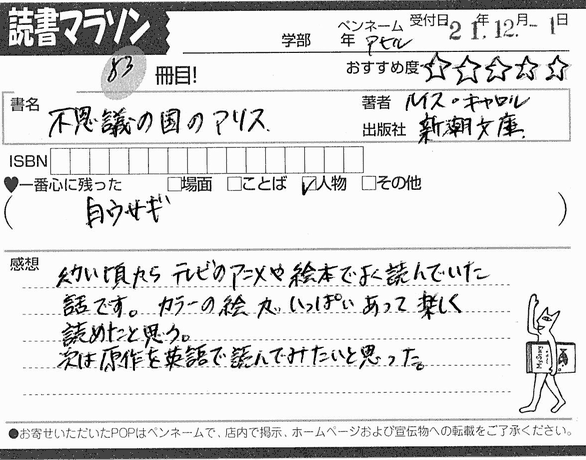 読書マラソン
学部 年 ペンネーム アセル 受付日 21年12月-1日
83冊目!
おすすめ度 ☆☆☆☆☆
書名 不思議の国のアリス
著者 ルイス・キャロル
出版社 新潮文庫
ISBN
♥一番心に残った □場面 □ことば ☑人物 □その他
( 白ウサギ )
感想
幼い頃から テレビのアニメや絵本でよく読んでいた
話です。カラーの絵が いっぱい あって 楽しく
読めたと思う。
次は原作を英語で読んでみたいと思った。
●お寄せいただいたPOPはペンネームで、店内で掲示、ホームページおよび宣伝物への転載をご了承ください。